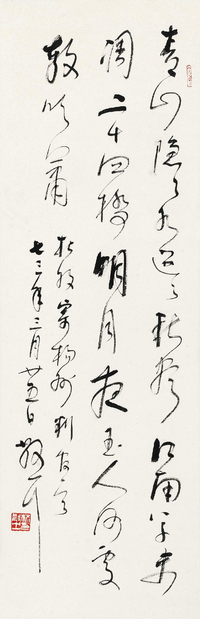 青山隐々水迢々秋尽江南草未
凋二十四桥明月夜玉人何处
教吹箫
杜牧寄扬州判官
七三年三月廿五日散耳